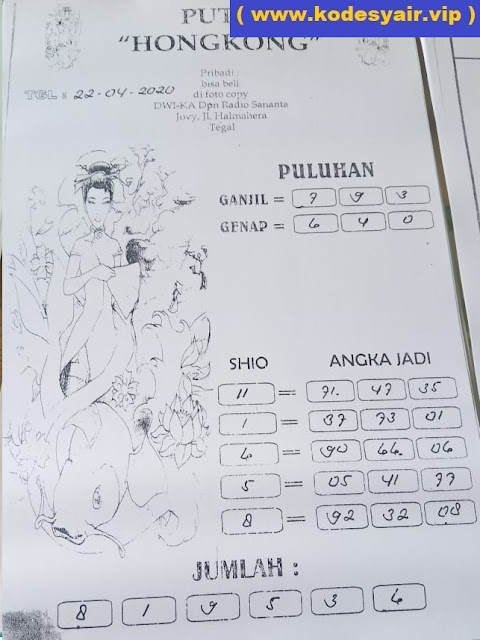 ( www.kodesyair.vip )
PUT
"HONGKONG"
Pribadi
bisa beli
di foto copy
DWI-KA Dpn Radio Sananta
Jovy, Jl. Halmahera
Tegal
TGL : 22-04-2020
PULUHAN
GANJIL = 7 9 3
GENAP = 6 4 0
SHIO ANGKA JADI
11 = 71. 47 35
1 = 37 73 01
6 = 90 66. 06
5 = 05 41 77
8 = 92 32 08
JUMLAH :
8 1 9 5 3 6